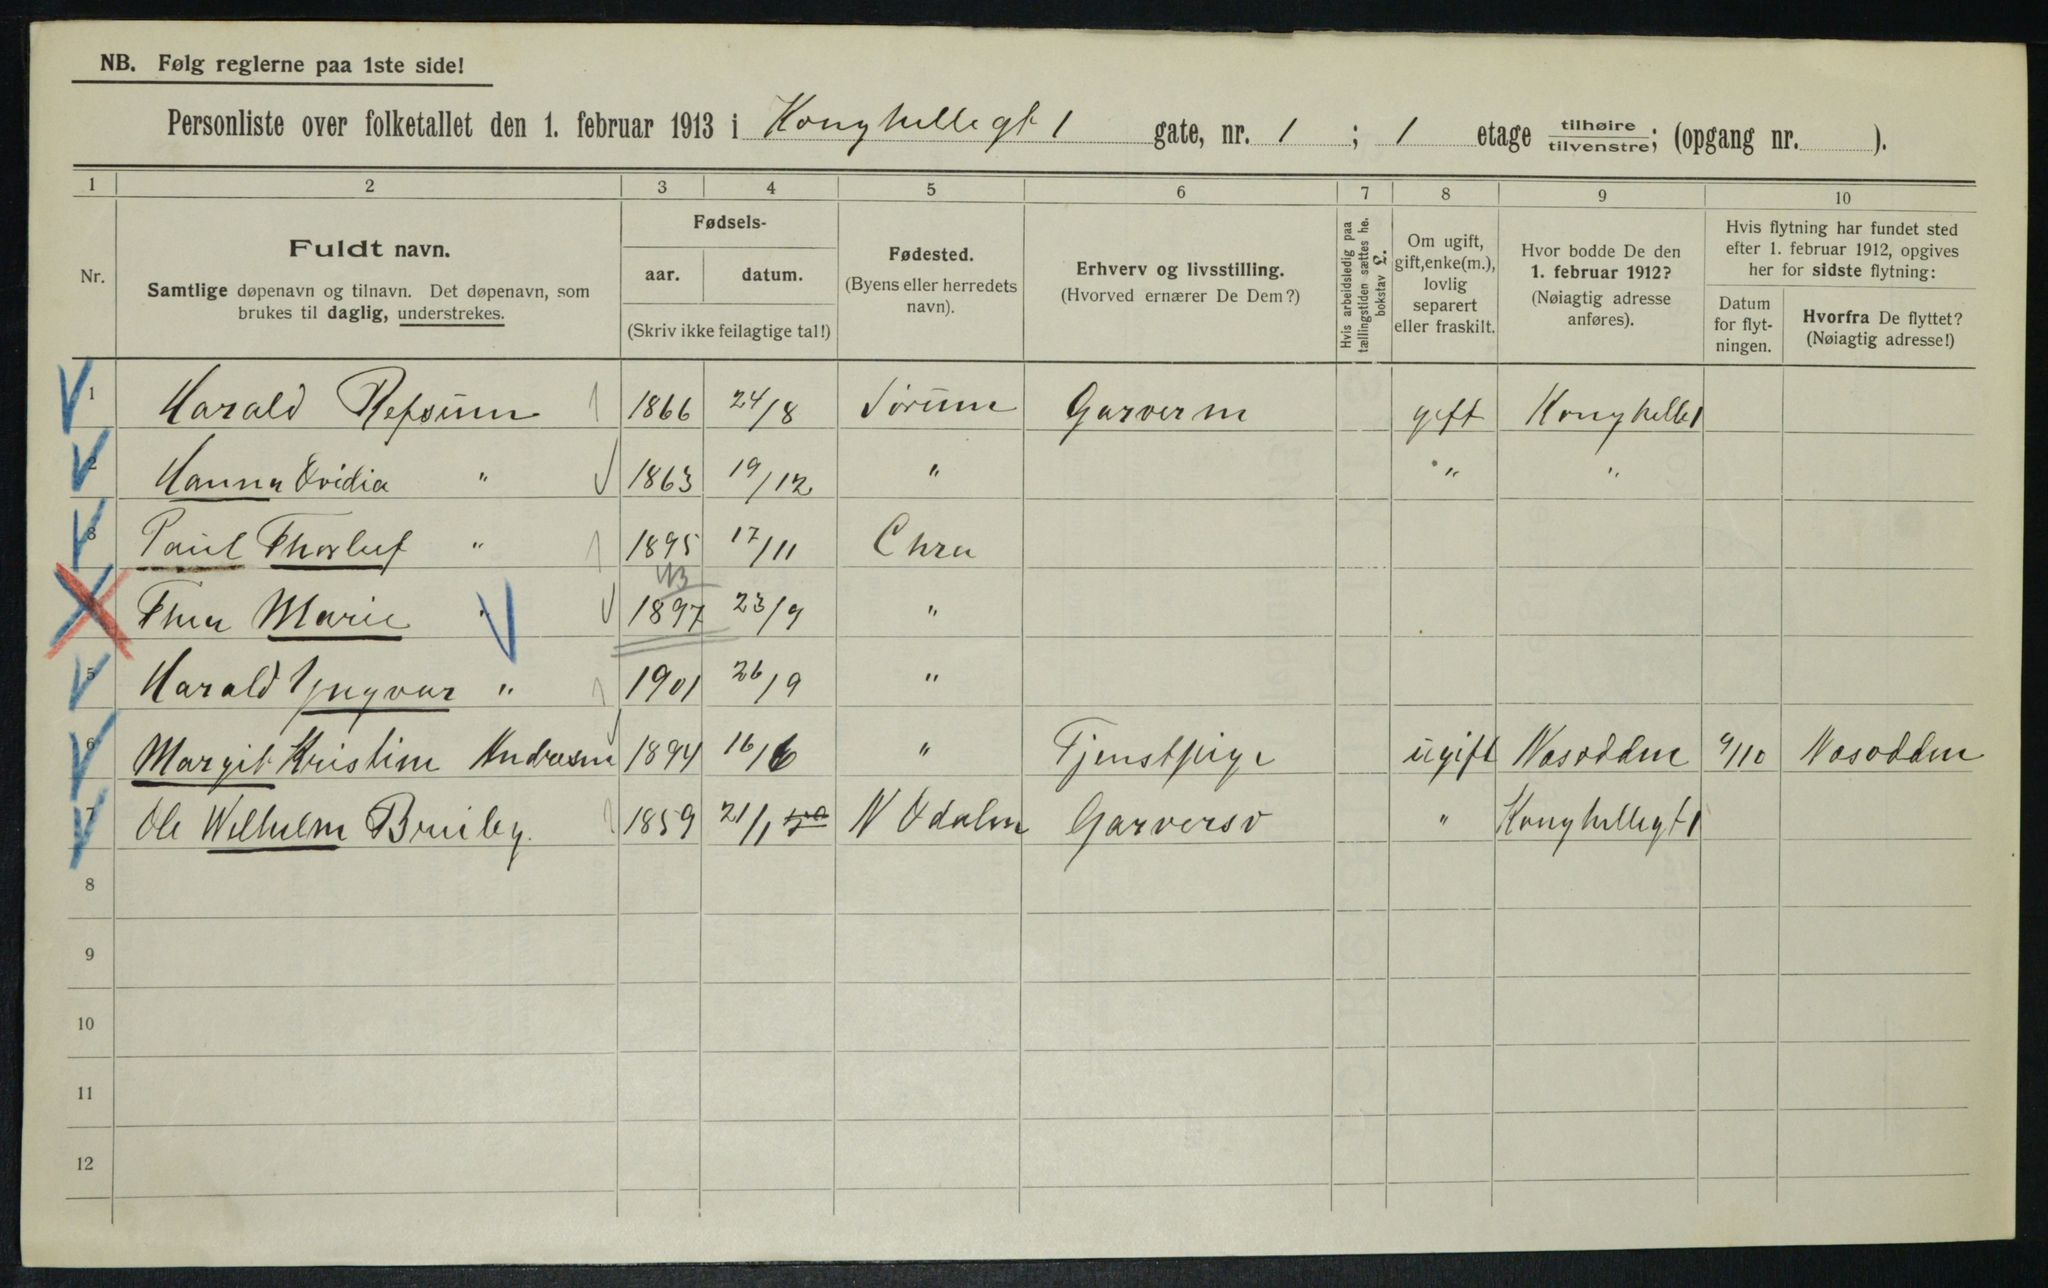 NB. Følg reglerne paa 1ste side!
Personliste over folketallet den 1. februar 1913 i Konghellegt 1 gate, nr. 1 ; 1 etage tilhøire tilvenstre; (opgang nr. ).
1 2 3 4 5 6 7 8 9 10
Nr.
Fuldt navn.
Samtlige døpenavn og tilnavn. Det døpenavn, som
brukes til daglig, understrekes.
Fødsels-
aar. datum.
(Skriv ikke feilagtige tal!)
Fødested.
(Byens eller herredets
navn).
Erhverv og livsstilling.
(Hvorved ernærer De Dem?)
Hvis arbeidsledig paa
tællingstiden sættes he.
bokstav L.
Om ugift,
gift, enke(m.),
lovlig
separert
eller fraskilt.
Hvor bodde De den
1. februar 1912?
(Nøiagtig adresse
anføres).
Hvis flytning har fundet sted
efter 1. februar 1912, opgives
her for sidste flytning:
Datum
for flyt-
ningen.
Hvorfra De flyttet?
(Nøiagtig adresse!)
1 Harald Refsum 1866 24/8 Sørum Garverm gift Konghelle 1
2 Hanna Ovidia " 1863 19/12 " " "
3 Paul Thorluf " 1895 17/11 Chra
Thea Marie " 1897 23/9 "
5 Harald Yngvar " 1901 26/9 "
6 Margit Kristine Andresen 1894 16/6 " Tjenstpige ugift Nesodden 9/10 Nesodden
7 Ole Wilhelm Bruiley 1859 21/1 N Odalen Garversv " Konghellegt 1
8
9
10
11
12